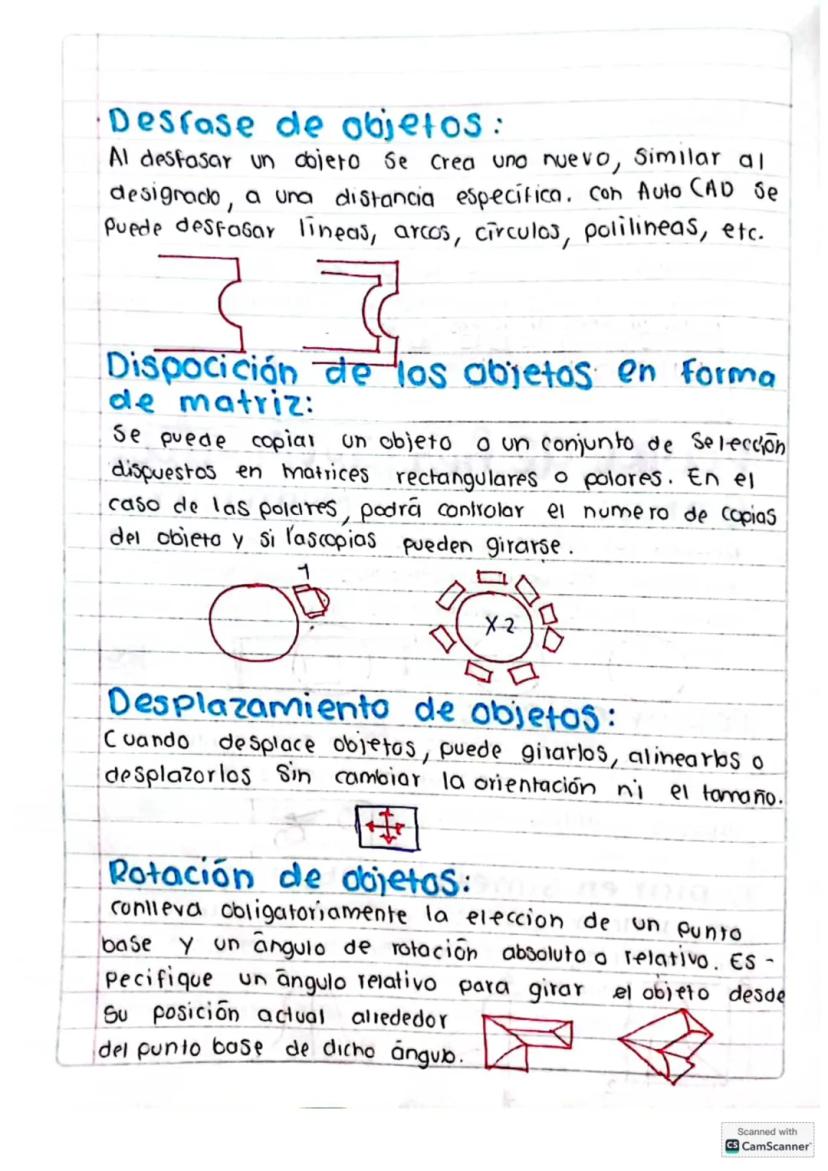 Desfase de objetos:
Al desfasar un objeto se crea uno nuevo, similar al
designado, a una distancia específica. con Auto CAD se
puede desfasar líneas, arcos, círculos, polilineas, etc.
Dispocición de los objetos en forma
de matriz:
Se puede copiar un objeto o un conjunto de Selección
dispuestos en matrices rectangulares o polares. En el
caso de las polares, podrá controlar el numero de copias
del objeto y si las copias pueden girarse.
1
X-2
Desplazamiento de objetos:
Cuando desplace objetos, puede girarlos, alinearlos o
desplazarlos Sin cambiar la orientación ni el tamaño.
Rotación de objetos:
conlleva obligatoriamente la eleccion de un punto
base y un ángulo de rotación absoluto o relativo. Es-
pecifique un ángulo relativo para girar el objeto desde
su posición actual alrededor
del punto base de dicho ángulo.
Scanned with
CS CamScanner